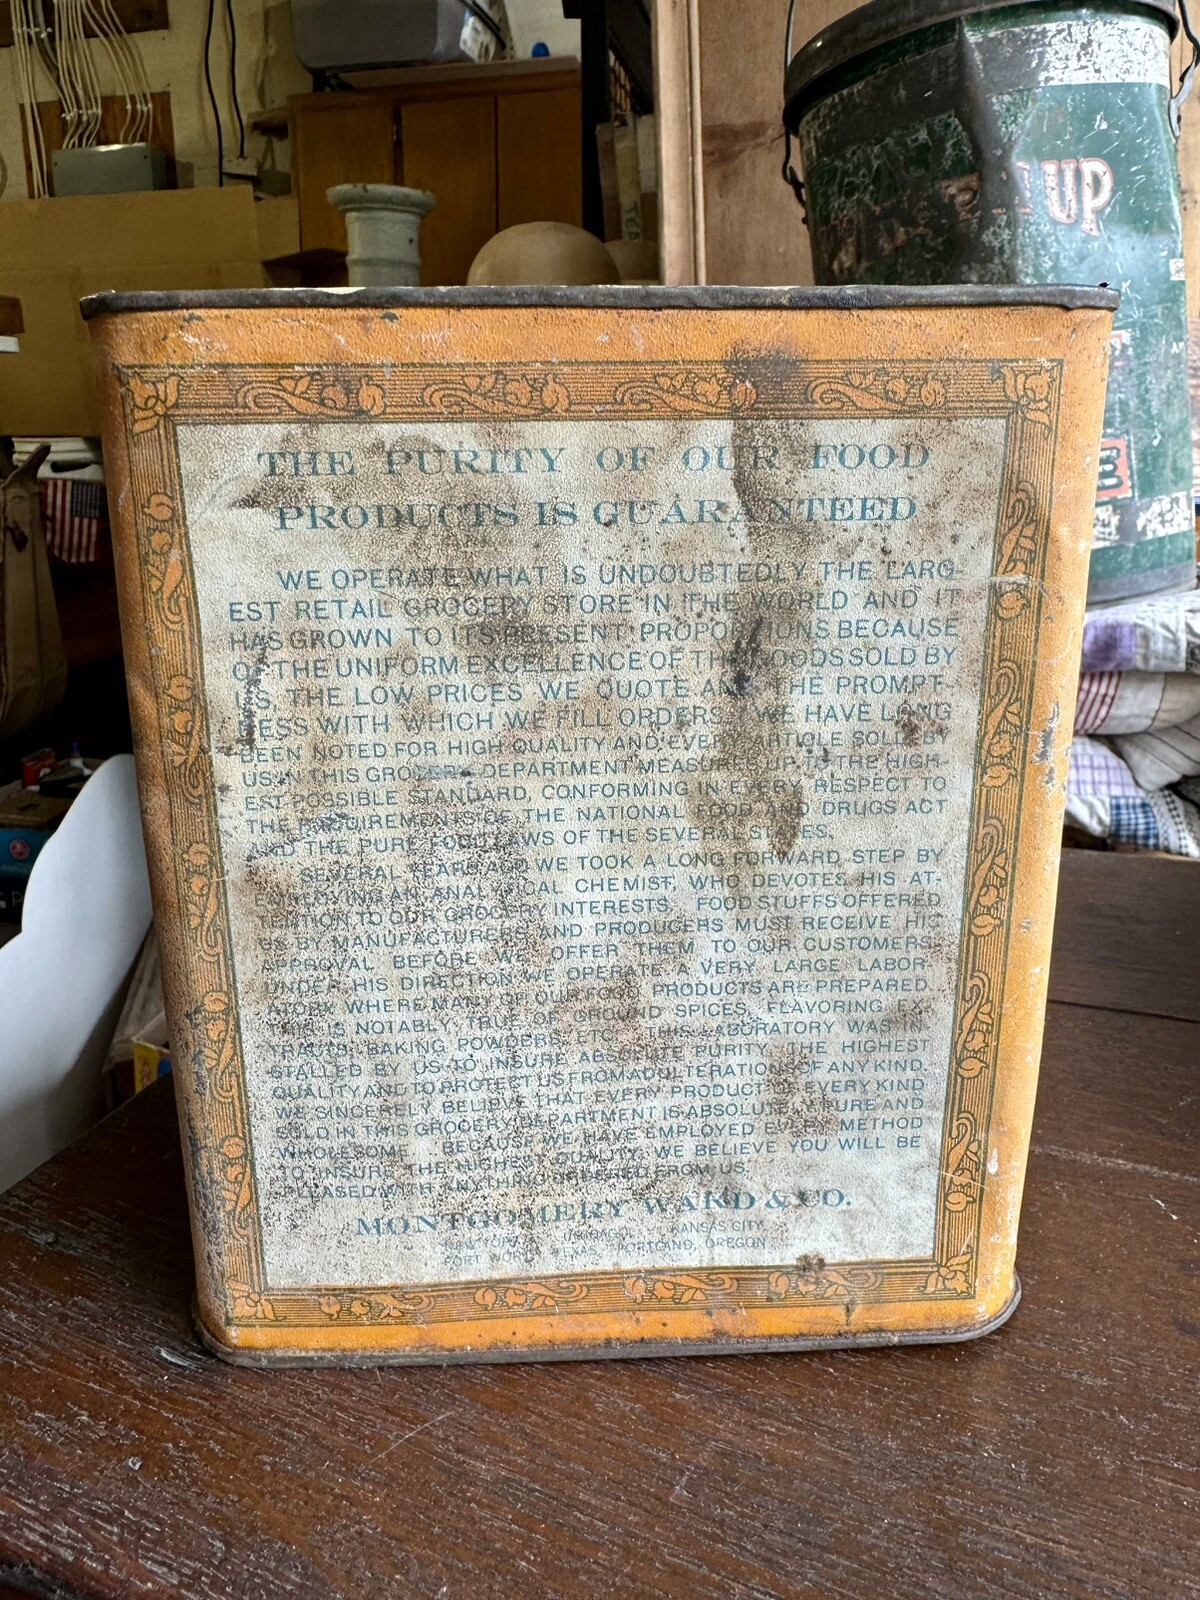 UP
THE PURITY OF OUR FOOD
PRODUCTS IS GUARANTEED
WE OPERATE WHAT IS UNDOUBTEDLY THE LARG-
EST RETAIL GROCERY STORE IN THE WORLD AND IT
HAS GROWN TO ITS PRESENT PROPORTIONS BECAUSE
OF THE UNIFORM EXCELLENCE OF THE GOODS SOLD BY
US, THE LOW PRICES WE QUOTE AND THE PROMPT-
NESS WITH WHICH WE FILL ORDERS. WE HAVE LONG
BEEN NOTED FOR HIGH QUALITY AND EVERY ARTICLE SOLD BY
US IN THIS GROCERY DEPARTMENT MEASURES UP TO THE HIGH-
EST POSSIBLE STANDARD, CONFORMING IN EVERY RESPECT TO
THE REQUIREMENTS OF THE NATIONAL FOOD AND DRUGS ACT
AND THE PURE FOOD LAWS OF THE SEVERAL STATES.
SEVERAL YEARS AGO WE TOOK A LONG FORWARD STEP BY
EMPLOYING AN ANALYTICAL CHEMIST, WHO DEVOTES HIS AT-
TENTION TO OUR GROCERY INTERESTS. FOOD STUFFS OFFERED
US BY MANUFACTURERS AND PRODUCERS MUST RECEIVE HIS
APPROVAL BEFORE WE OFFER THEM TO OUR CUSTOMERS.
UNDER HIS DIRECTION WE OPERATE A VERY LARGE LABOR-
ATORY WHERE MANY OF OUR FOOD PRODUCTS ARE PREPARED.
THIS IS NOTABLY TRUE OF GROUND SPICES, FLAVORING EX-
TRACTS, BAKING POWDERS, ETC. THIS LABORATORY WAS IN-
STALLED BY US TO INSURE ABSOLUTE PURITY, THE HIGHEST
QUALITY AND TO PROTECT US FROM ADULTERATIONS OF ANY KIND.
WE SINCERELY BELIEVE THAT EVERY PRODUCT OF EVERY KIND
SOLD IN THIS GROCERY DEPARTMENT IS ABSOLUTELY PURE AND
WHOLESOME. BECAUSE WE HAVE EMPLOYED EVERY METHOD
TO INSURE THE HIGHEST QUALITY, WE BELIEVE YOU WILL BE
PLEASED WITH ANYTHING ORDERED FROM US.
MONTGOMERY WARD & CO.
NEW YORK CHICAGO KANSAS CITY
FORT WORTH, TEXAS PORTLAND, OREGON